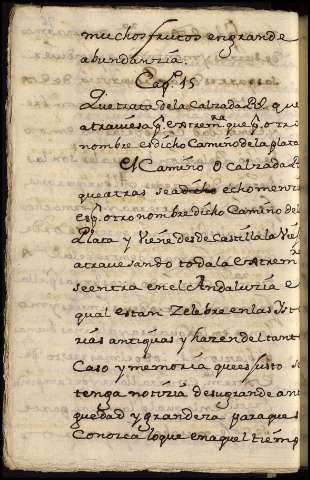 muchos frutos en grande
abundanzia.
Capº. 15
Que trata de la Calzada Rl. que
atraviesa pr. Extremra que pr. otro
nombre es dicho Camino de la plata
El Camino o Calzada Rl.
que atras se a dicho echo menzio
es pr. otro nombre dicho Camino del
Plata y Viene desde Castilla la Viej
atravesando toda la Extrem
se entra en el Andaluzia e
qual es tan Zelebre en las Yst
rias antiguas y hazen del tant
Caso y memoria que es justo se
tenga notizia de su grande an
guedad y grandeza para que s
Conozca lo que en aquel tiemp